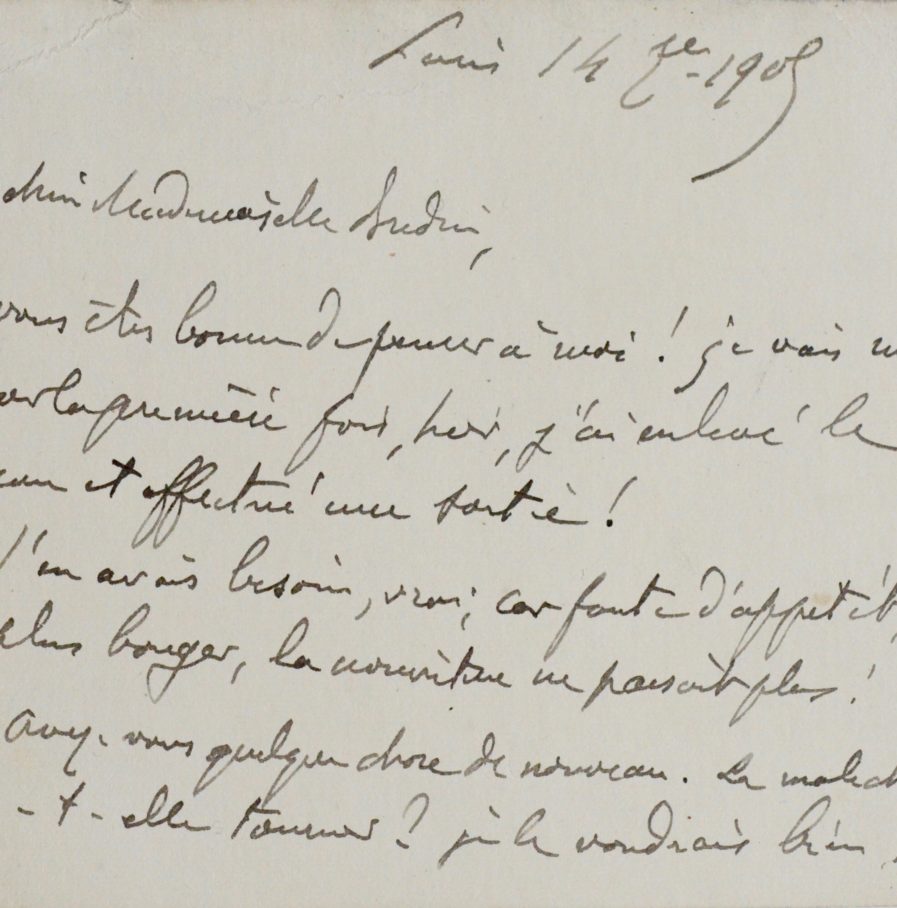 Paris 14 1905
chère Mademoiselle
vous êtes bonne de penser à moi ! je vais
la première fois, hier, j'ai enlevé le
et effectué une sortie !
J'en avais besoin, vrai, car faute d'appétit,
plus bouger, la nourriture ne passait plus !
Avez-vous quelque chose de nouveau. La
-t-elle tourner ? je le voudrais bien